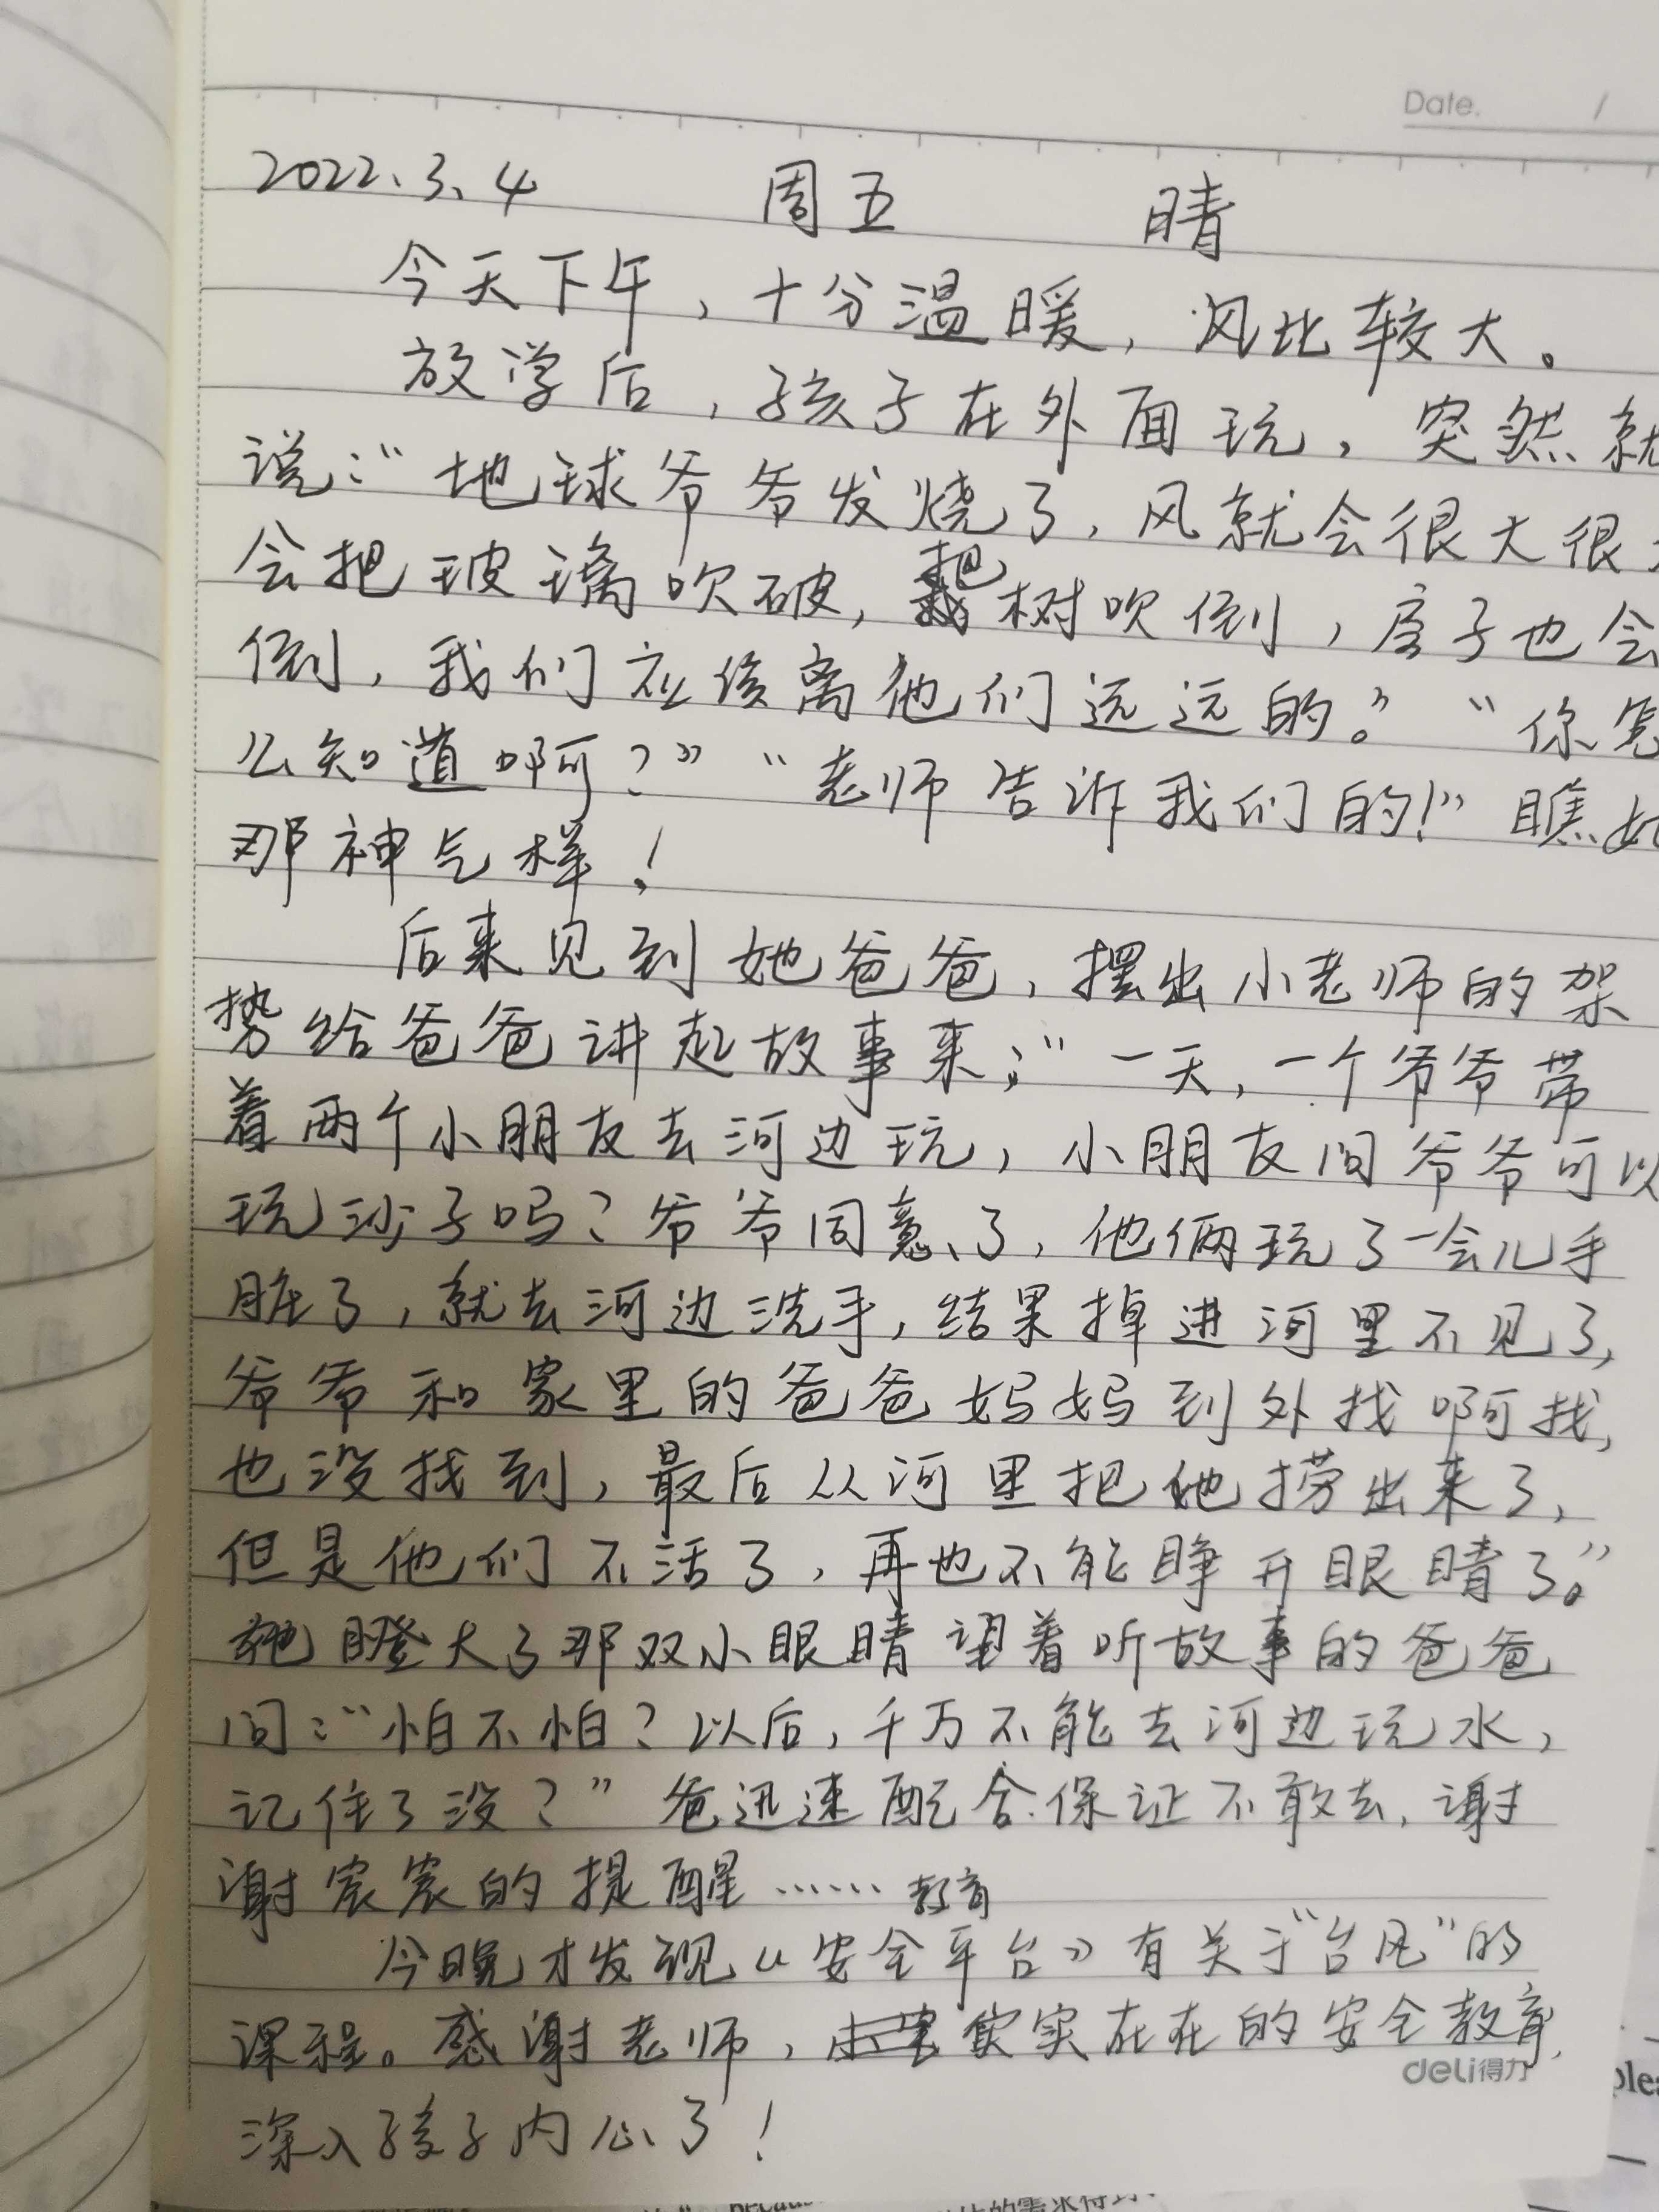 Date. /
2022.3.4 周五 晴
今天下午，十分温暖，风比较大。
放学后，孩子在外面玩，突然就
说：“地球爷爷发烧了，风就会很大很
会把玻璃吹破，把树吹倒，房子也会
倒，我们应该离他们远远的。”“你怎
么知道啊？”“老师告诉我们的！”瞧她
那神气样！
后来见到她爸爸，摆出小老师的架
势给爸爸讲起故事来：“一天，一个爷爷带
着两个小朋友去河边玩，小朋友问爷爷可以
玩沙子吗？爷爷同意了，他俩玩了一会儿手
脏了，就去河边洗手，结果掉进河里不见了，
爷爷和家里的爸爸妈妈到外找啊找，
也没找到，最后从河里把他捞出来了，
但是他们不活了，再也不能睁开眼睛了。”
她瞪大了那双小眼睛望着听故事的爸爸
问：“怕不怕？以后，千万不能去河边玩水，
记住了没？”爸迅速配合保证不敢去，谢
谢宸宸的提醒……
今晚才发现《安全教育平台》有关于“台风”的
课程。感谢老师，实实在在的安全教育，
deli得力
深入孩子内心了！